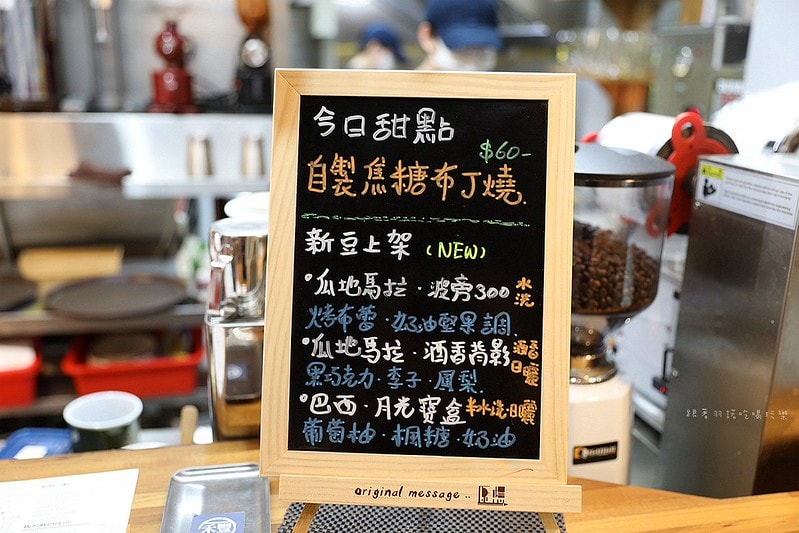 今日甜點
$60-
自製焦糖布丁燒.
新豆上架 (NEW)
•瓜地馬拉·波旁300 水洗
烤布蕾·奶油堅果調.
•瓜地馬拉·酒香背影 酒香日曬
黑巧克力·李子·鳳梨.
•巴西·月光寶盒 半水洗·日曬
葡萄柚·楓糖·奶油
original message ..
跟著羽諾吃喝玩樂